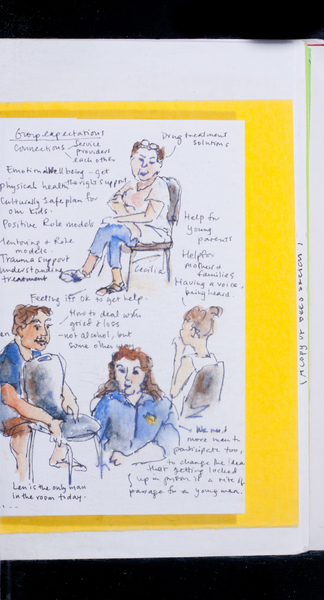 Group expectations
Connections
Service
providers
each other
Drug treatment
solutions
Emotional Well being - get
the right support
physical health
Culturally Safe plan for
our kids.
Positive Role models
Mentoring & Role
models.
Trauma support
understanding
treatment
Help for
young
parents
Help for
mothers &
families
Having a voice,
being heard.
Cecilia
Feeling it's ok to get help.
How to deal with
grief & loss
- not alcohol, but
some other way
We need
more men to
participate too,
to change the idea
that getting locked
up in prison is a rite of
passage for a young man.
Len is the only man
in the room today.